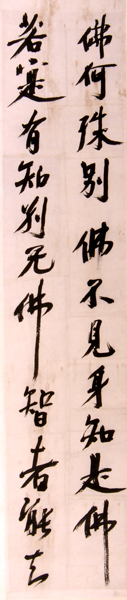 佛何殊别佛不見身知是佛
若實有知别无佛智者能知